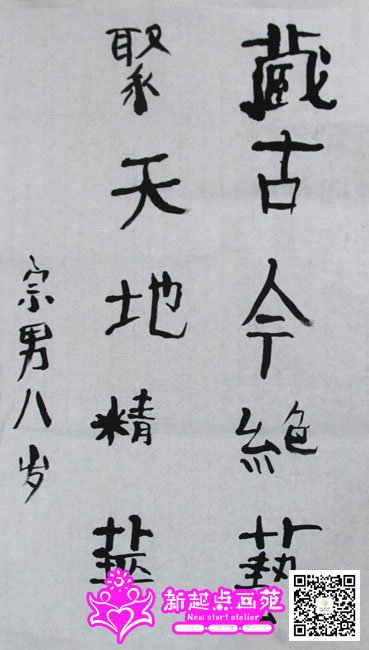 藏古今絶藝
聚天地精華
宗男八岁
新起点画苑
New start atelier